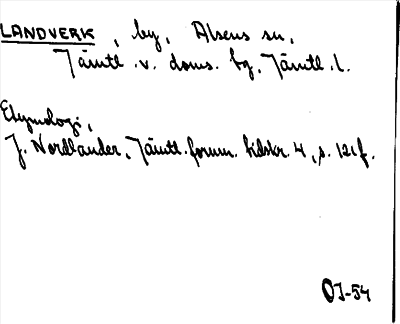 LANDVERK, by, Alsens sn,
Jämtl. v. doms. bg, Jämtl. l.
Etymologi,
J. Nordlander, Jämtl. fornm. tidskr. 4, s. 121 f.
OJ-54